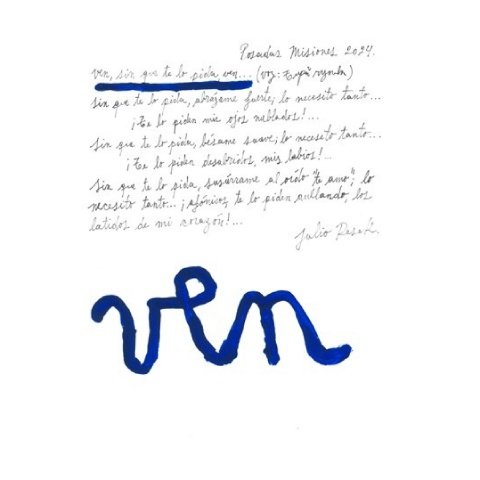 Posadas Misiones 2024.
ven, sin que te lo pida, ven... (voz:
sin que te lo pida, abrázame fuerte; lo necesito tanto...
¡te lo piden mis ojos nublados!...
sin que te lo pida, bésame suave; lo necesito tanto...
¡te lo piden desabridos, mis labios!...
sin que te lo pida, susúrrame al oído "te amo"; lo
necesito tanto... ¡afónicos, te lo piden aullando, los
latidos de mi corazón!...
Julio
ven